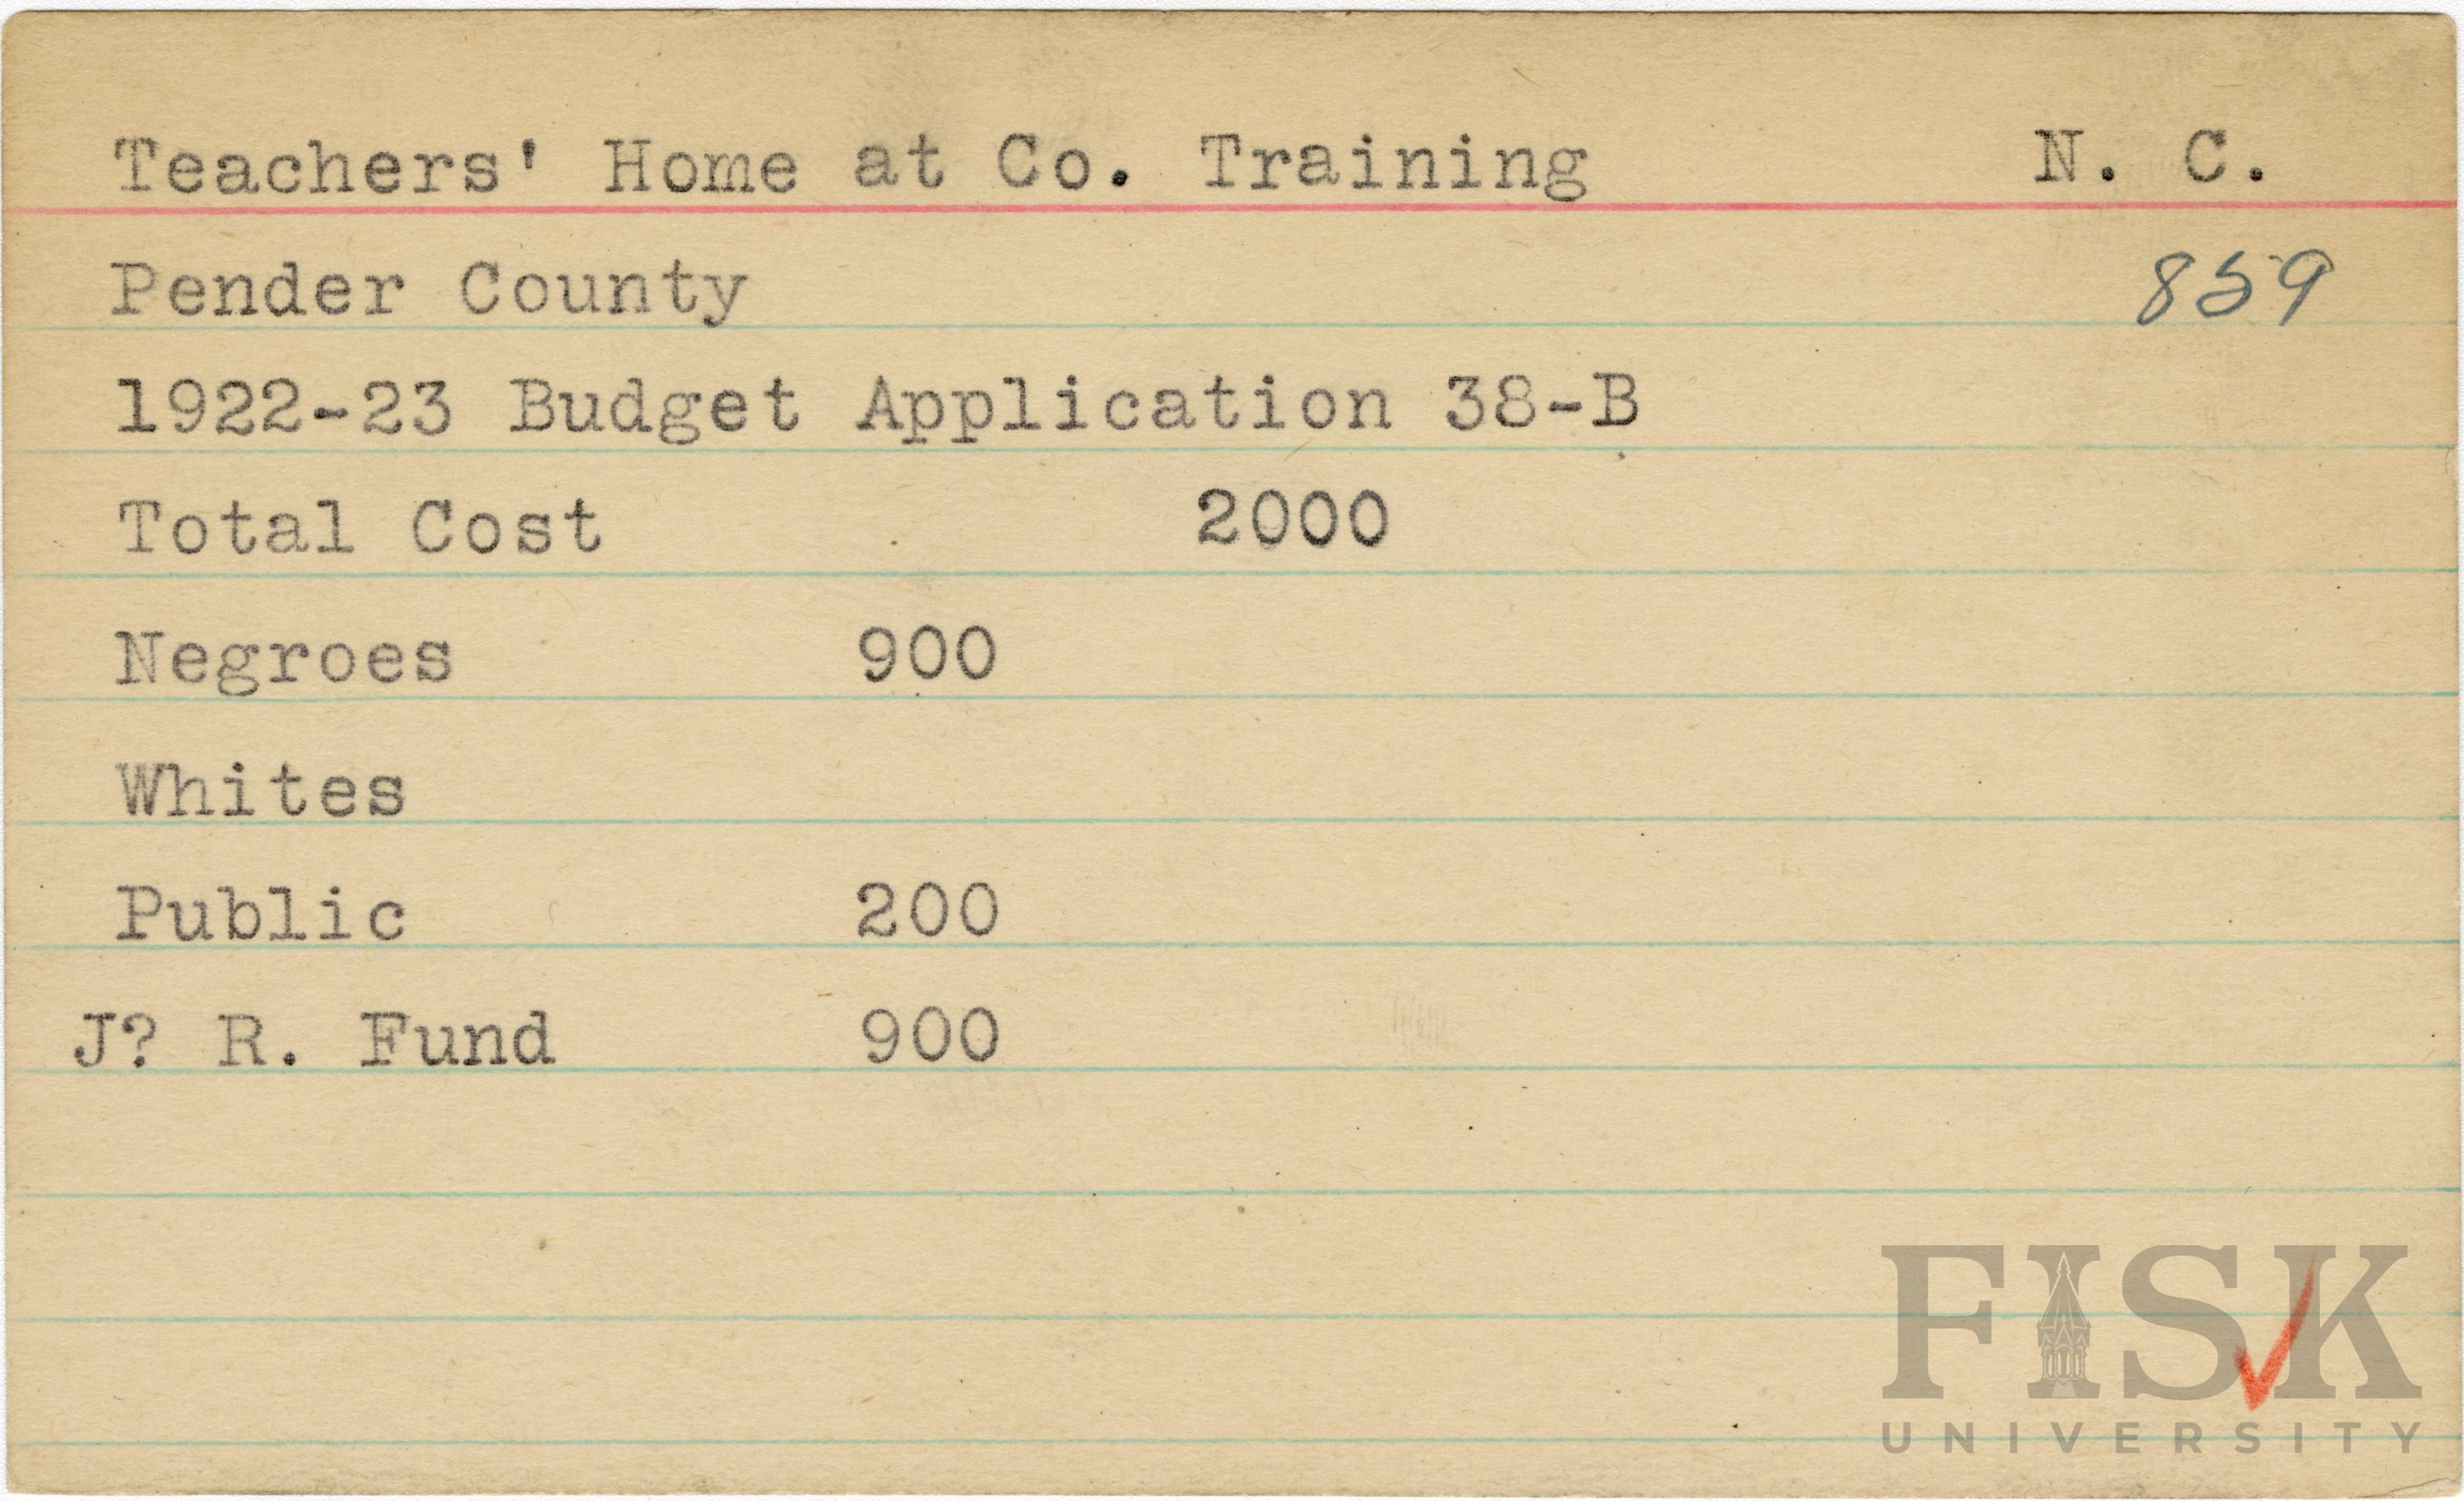 Teachers' Home at Co. Training N. C.
Pender County 859
1922-23 Budget Application 38-B
Total Cost 2000
Negroes 900
Whites
Public 200
J? R. Fund 900
FISK
UNIVERSITY